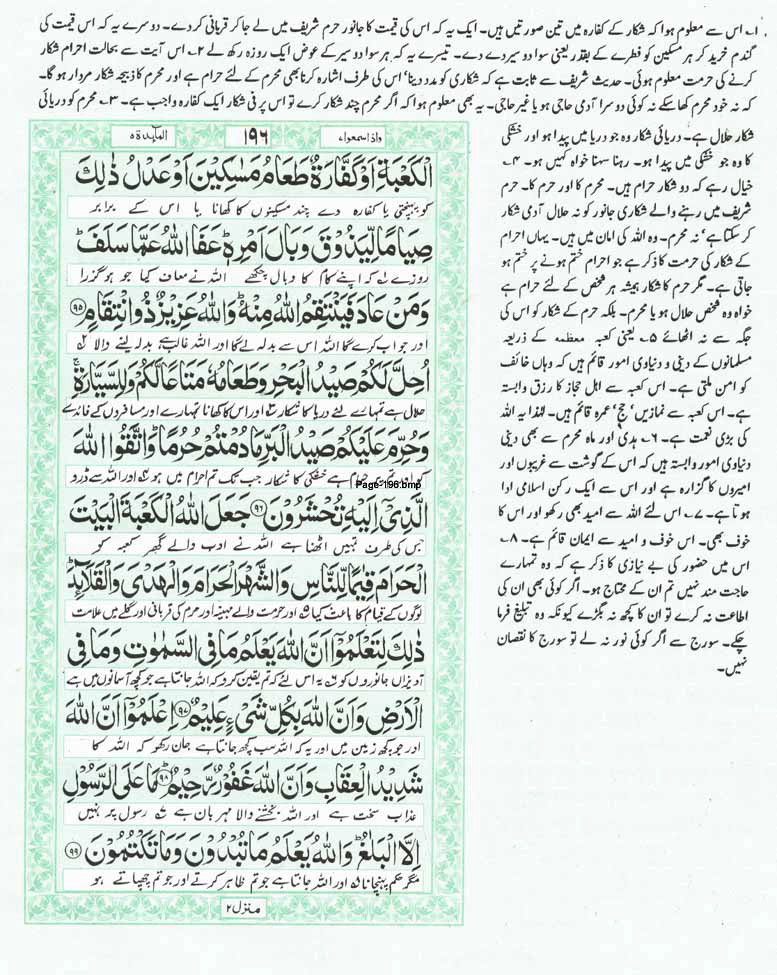 ۱۔ اس سے معلوم ہوا کہ شکار کے کفارہ میں تین صورتیں ہیں۔ ایک یہ کہ اس کی قیمت کا جانور حرم شریف میں لے جا کر قربانی کر دے۔ دوسرے یہ کہ اس قیمت کی
گندم خرید کر ہر مسکین کو فطرے کے بقدر یعنی سوا دو سیر دے دے۔ تیسرے یہ کہ ہر سوا دو سیر کے عوض ایک روزہ رکھ لے ۲۔ اس آیت سے بحالت احرام شکار
کرنے کی حرمت معلوم ہوئی۔ حدیث شریف سے ثابت ہے کہ شکاری کو مدد دینا' اس کی طرف اشارہ کرنا بھی محرم کے لئے حرام ہے اور محرم کا ذبیحہ شکار مردار ہو گا۔
کہ نہ خود محرم کھا سکے نہ کوئی دوسرا آدمی حاجی ہو یا غیر حاجی۔ یہ بھی معلوم ہوا کہ اگر محرم چند شکار کرے تو اس پر فی شکار ایک کفارہ واجب ہے۔ ۳۔ محرم کو دریائی
شکار حلال ہے۔ دریائی شکار وہ جو دریا میں پیدا ہو اور خشکی
کا وہ جو خشکی میں پیدا ہو۔ رہنا سہنا خواہ کہیں ہو۔ ۴۔
خیال رہے کہ دو شکار حرام ہیں۔ محرم کا اور حرم کا۔ حرم
شریف میں رہنے والے شکاری جانور کو نہ حلال آدمی شکار
کر سکتا ہے' نہ محرم۔ وہ اللہ کی امان میں ہیں۔ یہاں احرام
کے شکار کی حرمت کا ذکر ہے جو احرام ختم ہونے پر ختم ہو
جاتی ہے۔ مگر حرم کا شکار ہمیشہ ہر شخص کے لئے حرام ہے
خواہ وہ شخص حلال ہو یا محرم۔ بلکہ حرم کے شکار کو اس کی
جگہ سے نہ اٹھائے ۵۔ یعنی کعبہ معظمہ کے ذریعہ
مسلمانوں کے دینی و دنیاوی امور قائم ہیں کہ وہاں خائف
کو امن ملتی ہے۔ اس کعبہ سے اہل حجاز کا رزق وابستہ
ہے۔ اس کعبہ سے نمازیں' حج' عمرہ قائم ہیں۔ لہٰذا یہ اللہ
کی بڑی نعمت ہے۔ ۶۔ ہدی اور ماہ محرم سے بھی دینی
دنیاوی امور وابستے ہیں کہ اس کے گوشت سے غریبوں اور
امیروں کا گزارہ ہے اور اس سے ایک رکن اسلامی ادا
ہوتا ہے۔ ۷۔ اس لئے اللہ سے امید بھی رکھو اور اس کا
خوف بھی۔ اس خوف و امید سے ایمان قائم ہے۔ ۸۔
اس میں حضور کی بے نیازی کا ذکر ہے کہ وہ تمہارے
حاجت مند نہیں تم ان کے محتاج ہو۔ اگر کوئی بھی ان کی
اطاعت نہ کرے تو ان کا کچھ نہ بگڑے کیونکہ وہ تبلیغ فرما
چکے۔ سورج سے اگر کوئی نور نہ لے تو سورج کا نقصان
نہیں۔
واذا سمعوا۷ ۱۹۶ المآئدۃ ۵
الْكَعْبَةِ اَوْ كَفَّارَةٌ طَعَامُ مَسٰكِيْنَ اَوْ عَدْلُ ذٰلِكَ
کو پہنچتی یا کفارہ دے چند مسکینوں کا کھانا یا اس کے برابر
صِيَامًا لِّيَذُوْقَ وَبَالَ اَمْرِهٖ عَفَا اللّٰهُ عَمَّا سَلَفَ
روزے کہ اپنے کام کا وبال چکھے اللہ نے معاف کیا جو ہو گزرا
وَمَنْ عَادَ فَيَنْتَقِمُ اللّٰهُ مِنْهُ وَاللّٰهُ عَزِيْزٌ ذُو انْتِقَامٍ ۹۵
اور جو اب کرے گا اللہ اس سے بدلہ لے گا اور اللہ غالب ہے بدلہ لینے والا
اُحِلَّ لَكُمْ صَيْدُ الْبَحْرِ وَطَعَامُهٗ مَتَاعًا لَّكُمْ وَلِلسَّيَّارَةِ
حلال ہے تمہارے لئے دریا کا شکار ۳ اور اس کا کھانا تمہارے اور مسافروں کے فائدے
وَحُرِّمَ عَلَيْكُمْ صَيْدُ الْبَرِّ مَا دُمْتُمْ حُرُمًا وَاتَّقُوا اللّٰهَ
کو اور تم پر حرام ہے خشکی کا شکار جب تک تم احرام میں ہو ۴ اور اللہ سے ڈرو
Page-196.bmp
الَّذِيْٓ اِلَيْهِ تُحْشَرُوْنَ ۹۶ جَعَلَ اللّٰهُ الْكَعْبَةَ الْبَيْتَ
جس کی طرف تمہیں اٹھنا ہے اللہ نے ادب والے گھر کعبہ کو
الْحَرَامَ قِيٰمًا لِّلنَّاسِ وَالشَّهْرَ الْحَرَامَ وَالْهَدْيَ وَالْقَلَآئِدَ
لوگوں کے قیام کا باعث کیا ۵ اور حرمت والے مہینہ اور حرم کی قربانی اور گلے میں علامت
ذٰلِكَ لِتَعْلَمُوْٓا اَنَّ اللّٰهَ يَعْلَمُ مَا فِي السَّمٰوٰتِ وَمَا فِي
آویزاں جانوروں کو ۶ یہ اس لئے کہ تم یقین کرو کہ اللہ جانتا ہے جو کچھ آسمانوں میں ہے
الْاَرْضِ وَاَنَّ اللّٰهَ بِكُلِّ شَيْءٍ عَلِيْمٌ ۹۷ اِعْلَمُوْٓا اَنَّ اللّٰهَ
اور جو کچھ زمین میں اور یہ کہ اللہ سب کچھ جانتا ہے جان رکھو کہ اللہ کا
شَدِيْدُ الْعِقَابِ وَاَنَّ اللّٰهَ غَفُوْرٌ رَّحِيْمٌ ۹۸ مَا عَلَى الرَّسُوْلِ
عذاب سخت ہے اور اللہ بخشنے والا مہربان ہے ۷ رسول پر نہیں
اِلَّا الْبَلٰغُ وَاللّٰهُ يَعْلَمُ مَا تُبْدُوْنَ وَمَا تَكْتُمُوْنَ ۹۹
مگر حکم پہنچانا ۸ اور اللہ جانتا ہے جو تم ظاہر کرتے اور جو تم چھپاتے ہو
منزل ۲